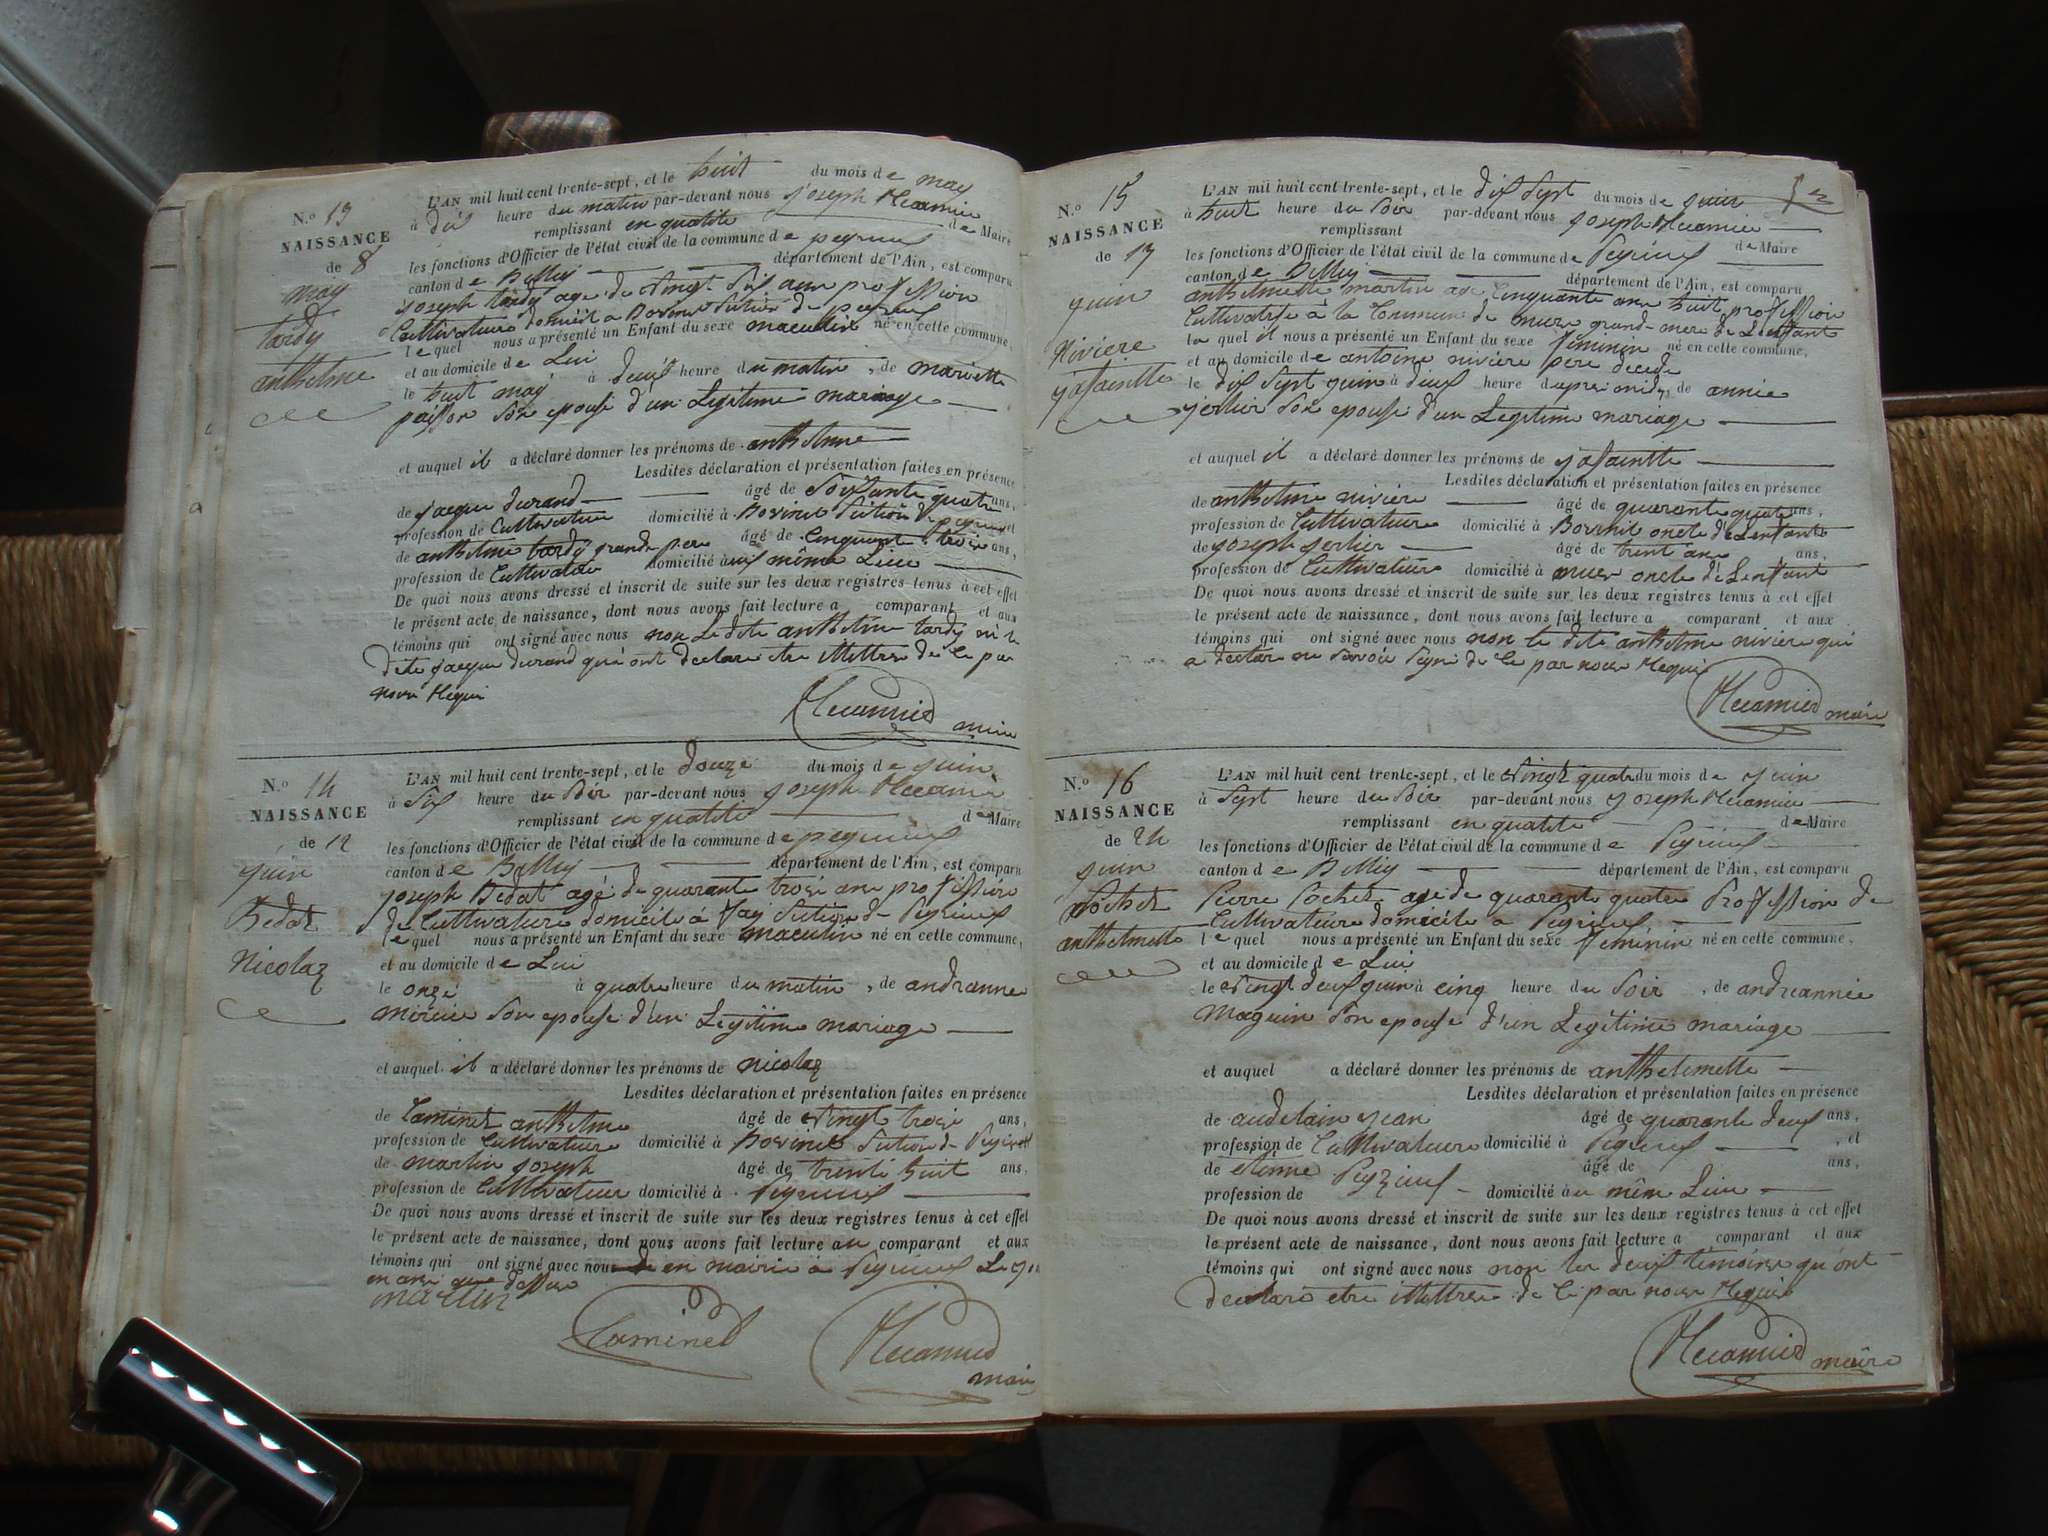 N.o 13
NAISSANCE
de 8
may
tardy
anthelme
L'AN mil huit cent trente-sept, et le huit du mois de may
à dix heure du matin par-devant nous joseph Récamier
remplissant en qualité de Maire
les fonctions d'Officier de l'état civil de la commune de peyrieux
canton de Belley département de l'Ain, est comparu
joseph tardy age de vingt six ans proffession
Cultivateure domicilé a Bovinel Sution de peyrieux
lequel nous a présenté un Enfant du sexe maculin né en cette commune,
et au domicile de Lui
le huit may à deux heure du matin, de mariette
paisson Son epouse d'un Legitime mariage
et auquel il a déclaré donner les prénoms de anthelme
Lesdites déclaration et présentation faites en présence
de jacque durand âgé de Soixante quatre ans,
profession de Cultivateure domicilié à Bovinel Sution de peyrieux et
de anthelme tardy grande pere âgé de Cinquante trois ans,
profession de Cultivateur domicilié au même Lieu
De quoi nous avons dressé et inscrit de suite sur les deux registres tenus à cet effet
le présent acte de naissance, dont nous avons fait lecture a comparant et aux
témoins qui ont signé avec nous non Le dite anthelme tardy ni le
dite jacque durand qui ont declare etre illettres de Ce par
nous Requi
Récamier maire
N.o 14
NAISSANCE
de 12
juin
Bedat
Nicolaz
L'AN mil huit cent trente-sept, et le douze du mois de juin
à Six heure du Soir par-devant nous joseph Récamie
remplissant en qualité de Maire
les fonctions d'Officier de l'état civil de la commune de peyrieux
canton de Belley département de l'Ain, est comparu
joseph Bedat agé de quarante trois ans proffession
de Cultivateure domicile à fay Sution de Peyrieux
lequel nous a présenté un Enfant du sexe maculin né en cette commune,
et au domicile de Lui
le onze à quatre heure du matin, de andréanne
mirieu Son epouse d'un Legitime mariage
et auquel il a déclaré donner les prénoms de nicolaz
Lesdites déclaration et présentation faites en présence
de Caminet anthelme âgé de vingt trois ans,
profession de Cultivateure domicilié à Bovinel Sution de Peyrieux et
de martin joseph âgé de trente huit ans,
profession de Cultivateur domicilié à Peyrieux
De quoi nous avons dressé et inscrit de suite sur les deux registres tenus à cet effet
le présent acte de naissance, dont nous avons fait lecture au comparant et aux
témoins qui ont signé avec nous en mairie a Peyrieux Le jour
dessus
martin
Caminet
Récamier
maire
N.o 15
NAISSANCE
de 17
juin
Riviere
yasaintte
L'AN mil huit cent trente-sept, et le dix Sept du mois de juin
à huit heure du Soir par-devant nous joseph Récamier
remplissant de Maire
les fonctions d'Officier de l'état civil de la commune de Peyrieux
canton de Belley département de l'Ain, est comparu
anthelmette martin age Cinquante ans huit proffession
Cultivatrise à la Commune de murs grand-mere de Lenfante
la quel il nous a présenté un Enfant du sexe feminin né en cette commune,
et au domicile de antoine riviere pere decede
le dix Sept juin à deux heure d apres midy, de annie
jerlier Son epouse d'un Legitime mariage
et auquel il a déclaré donner les prénoms de yasaintte
Lesdites déclaration et présentation faites en présence
de anthelme riviére âgé de quarante quatre ans,
profession de Cultivateure domicilié à Bovinel oncle de Lenfante
de joseph jerlier âgé de trent ans ans,
profession de Cultivateure domicilié à murs oncle dé Lenfante
De quoi nous avons dressé et inscrit de suite sur les deux registres tenus à cet effet
le présent acte de naissance, dont nous avons fait lecture a comparant et aux
témoins qui ont signé avec nous non le dite anthelme riviere qui
a declare ne Savoir Signé de Ce par nous Requi
Récamier maire
N.o 16
NAISSANCE
de 24
juin
Pochet
anthelmette
L'AN mil huit cent trente-sept, et le vingt quatre du mois de juin
à Sept heure du Soir par-devant nous joseph Récamier
remplissant en qualité de Maire
les fonctions d'Officier de l'état civil de la commune de Peyrieux
canton de Belley département de l'Ain, est comparu
Pierre Pochet age de quarant quatre Proffession de
Cultivateure domicile a Peyrieux
lequel nous a présenté un Enfant du sexe feminin né en cette commune,
et au domicile de Lui
le vingt deux juin à cinq heure du Soir, de andréannée
Maguin Son epouse d'un Legitime mariage
et auquel a déclaré donner les prénoms de anthelemette
Lesdites déclaration et présentation faites en présence
de audelain jean âgé de quarante deux ans,
profession de Cultivateure domicilié à Peyrieux, et
de etienne Peyzieux âgé de ans,
profession de domicilié au mêm Lieu
De quoi nous avons dressé et inscrit de suite sur les deux registres tenus à cet effet
le présent acte de naissance, dont nous avons fait lecture a comparant et aux
témoins qui ont signé avec nous non les deux témoins qu'ont
declare etre illettres de Ce par nous Requis
Récamier maire